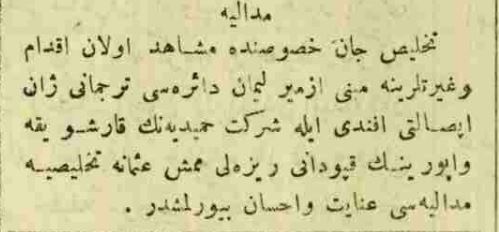 مداليه
تخليص جان خصوصنده مشاهد اولان اقدام
وغيرتلرينه مبنى ازمير ليمان دائره‌سى ترجمانى ژان
اپصالتى افندى ايله شركت حميديه‌نك قارشو يقه
واپورينك قپودانى ريزه‌لى ممش عثمانه تخليصيه
مداليه‌سى عنايت واحسان بيورلمشدر .